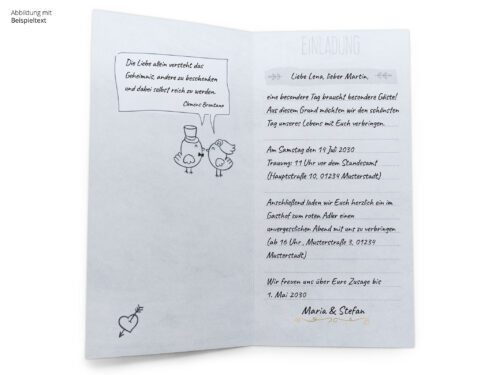 Abbildung mit
Beispieltext
Die Liebe allein versteht das
Geheimnis, andere zu beschenken
und dabei selbst reich zu werden.
Clemens Brentano
EINLADUNG
Liebe Lena, lieber Martin,
eine besondere Tag braucht besondere Gäste!
Aus diesem Grund möchten wir den schönsten
Tag unseres Lebens mit Euch verbringen.
Am Samstag den 14 Juli 2030
Trauung: 11 Uhr vor dem Standesamt
(Hauptstraße 10, 01234 Musterstadt)
Anschließend laden wir Euch herzlich ein im
Gasthof zum roten Adler einen
unvergesslichen Abend mit uns zu verbringen
(ab 16 Uhr, Musterstraße 3, 01234
Musterstadt)
Wir freuen uns über Eure Zusage bis
1. Mai 2030
Maria & Stefan